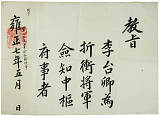 教旨
李台卿為
折衝將軍
僉知中樞
府事者
雍正七年五月 日